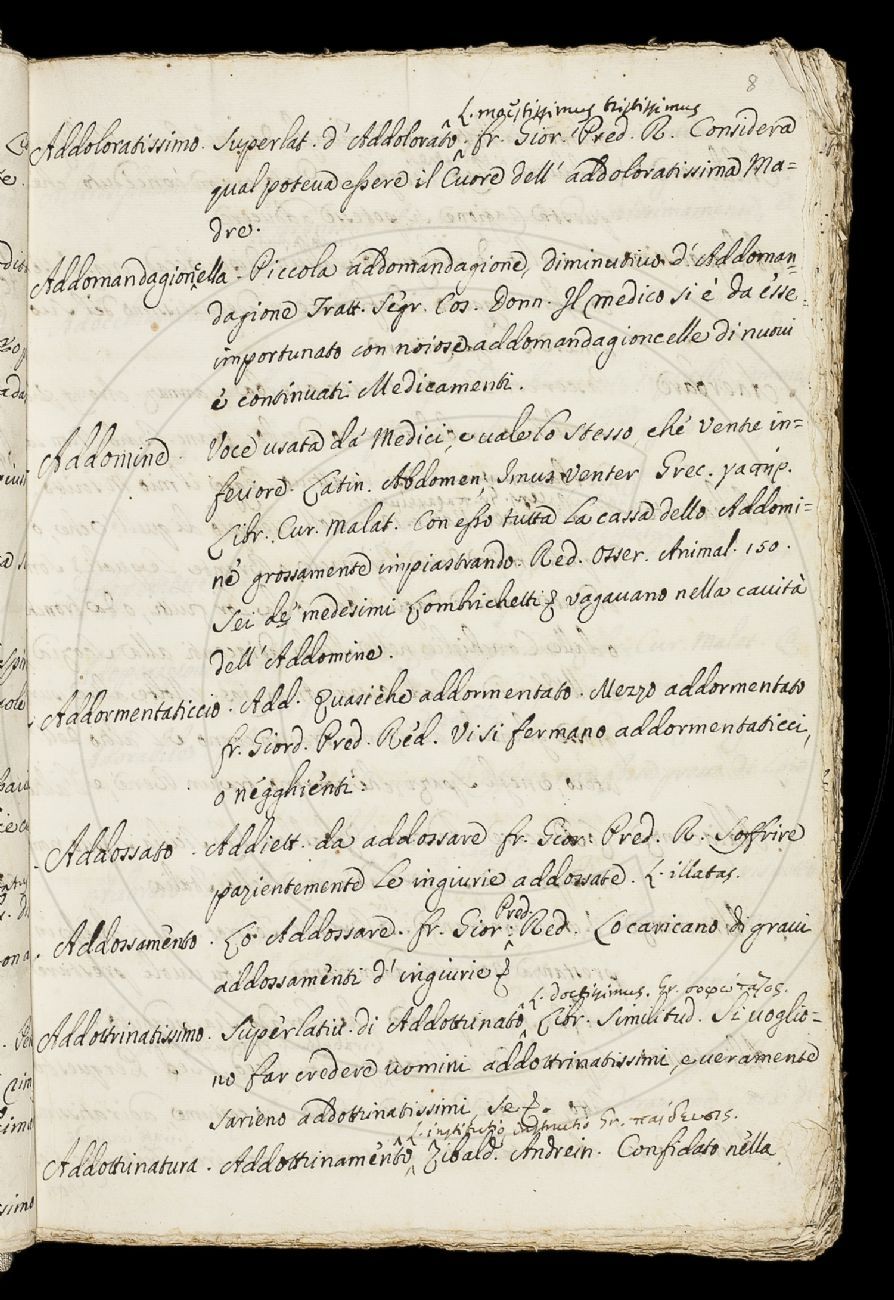 8
L. moestissimus tristissimus
Addoloratissimo. Superlat. d'Addolorato. fr. Gior. Pred. R. Considera
qual poteva essere il Cuore dell'addoloratissima Ma=
dre.
Addomandagioncella. Piccola addomandagione, diminutivo d'Addoman=
dagione Tratt. Segr. Cos. Donn. Il medico si è da esse=
importunato con noiose addomandagioncelle di nuovi
e continuati Medicamenti.
Addomine. Voce usata da Medici, e vale lo stesso, che ventre in=
feriore. Latin. Abdomen, Imus venter Grec. γαστήρ.
Libr. Cur. Malat. Con esso tutta la cassa dello Addomi=
ne grossamente impiastrando. Red. Osser. Animal. 150.
Sei de' medesimi Lombrichetti vagavano nella cavità
dell'Addomine.
Addormentaticcio. Add. Quasi che addormentato. Mezzo addormentato
fr. Giord. Pred. Red. Vi si fermano addormentaticci,
o negghienti:
Addossato. Addiett. da addossare fr. Gior: Pred. R. Soffrire
pazientemente le ingiurie addossate. L. illatas.
Addossamento. Lo Addossare. fr. Gior: Pred. Red. Lo caricano di gravi
addossamenti d'ingiurie
L. doctissimus. Gr. σοφώτατος.
Addottrinatissimo. Superlativ. di Addottrinato Libr. Similitud. Si voglio=
no far credere uomini addottrinatissimi, e veramente
sarieno addottrinatissimi, se
L. institutio instructio Gr. παίδευσις.
Addottrinatura. Addottrinamento Zibald. Andrein. Confidato nella